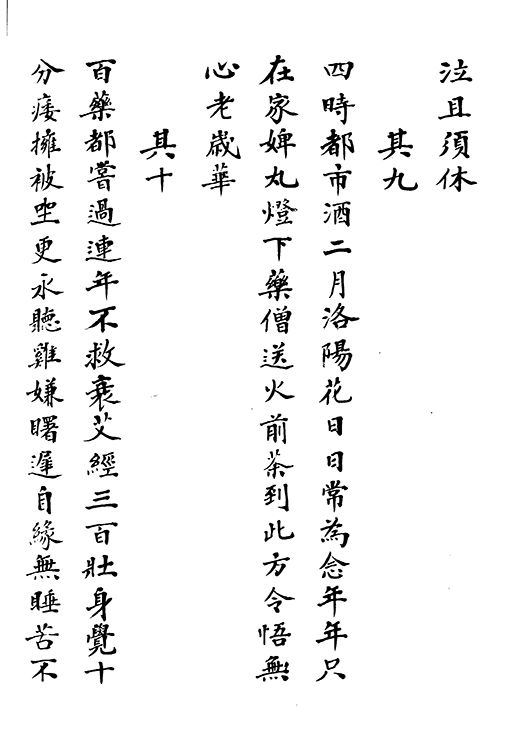 泣且須休
其九
四時都市酒二月洛陽花日日常為念年年只
在家婢丸燈下藥僧送火前茶到此方令悟無
心老歲華
其十
百藥都嘗過連年不救衰艾經三百壯身覺十
分痿擁被坐更永聽雞嫌曙遲自緣無睡苦不